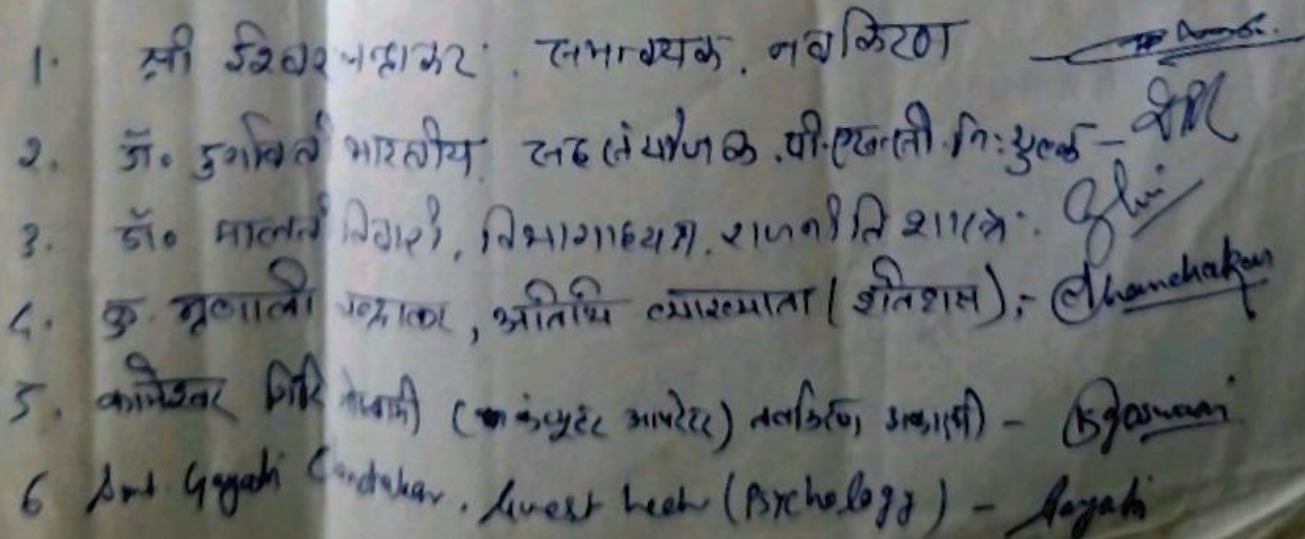 1. श्री ईश्वर चन्द्राकर. समन्वयक, नवकिरण
2. डॉ. भारतीय, सह संयोजक, नि:शुल्क -
3. डॉ. मालती तिवारी, विभागाध्यक्ष, राजनीति शास्त्र:
4. कु. मृणाली चन्द्राकर, अतिथि व्याख्याता (इतिहास) :- Chandrakar
5. कामेश्वर गिरि गोस्वामी (कंप्यूटर आपरेटर) नवकिरण अकादमी - Kgoswami
6 Smt. Gayatri Chandrakar, Guest Lect (Psychology) - Gayatri